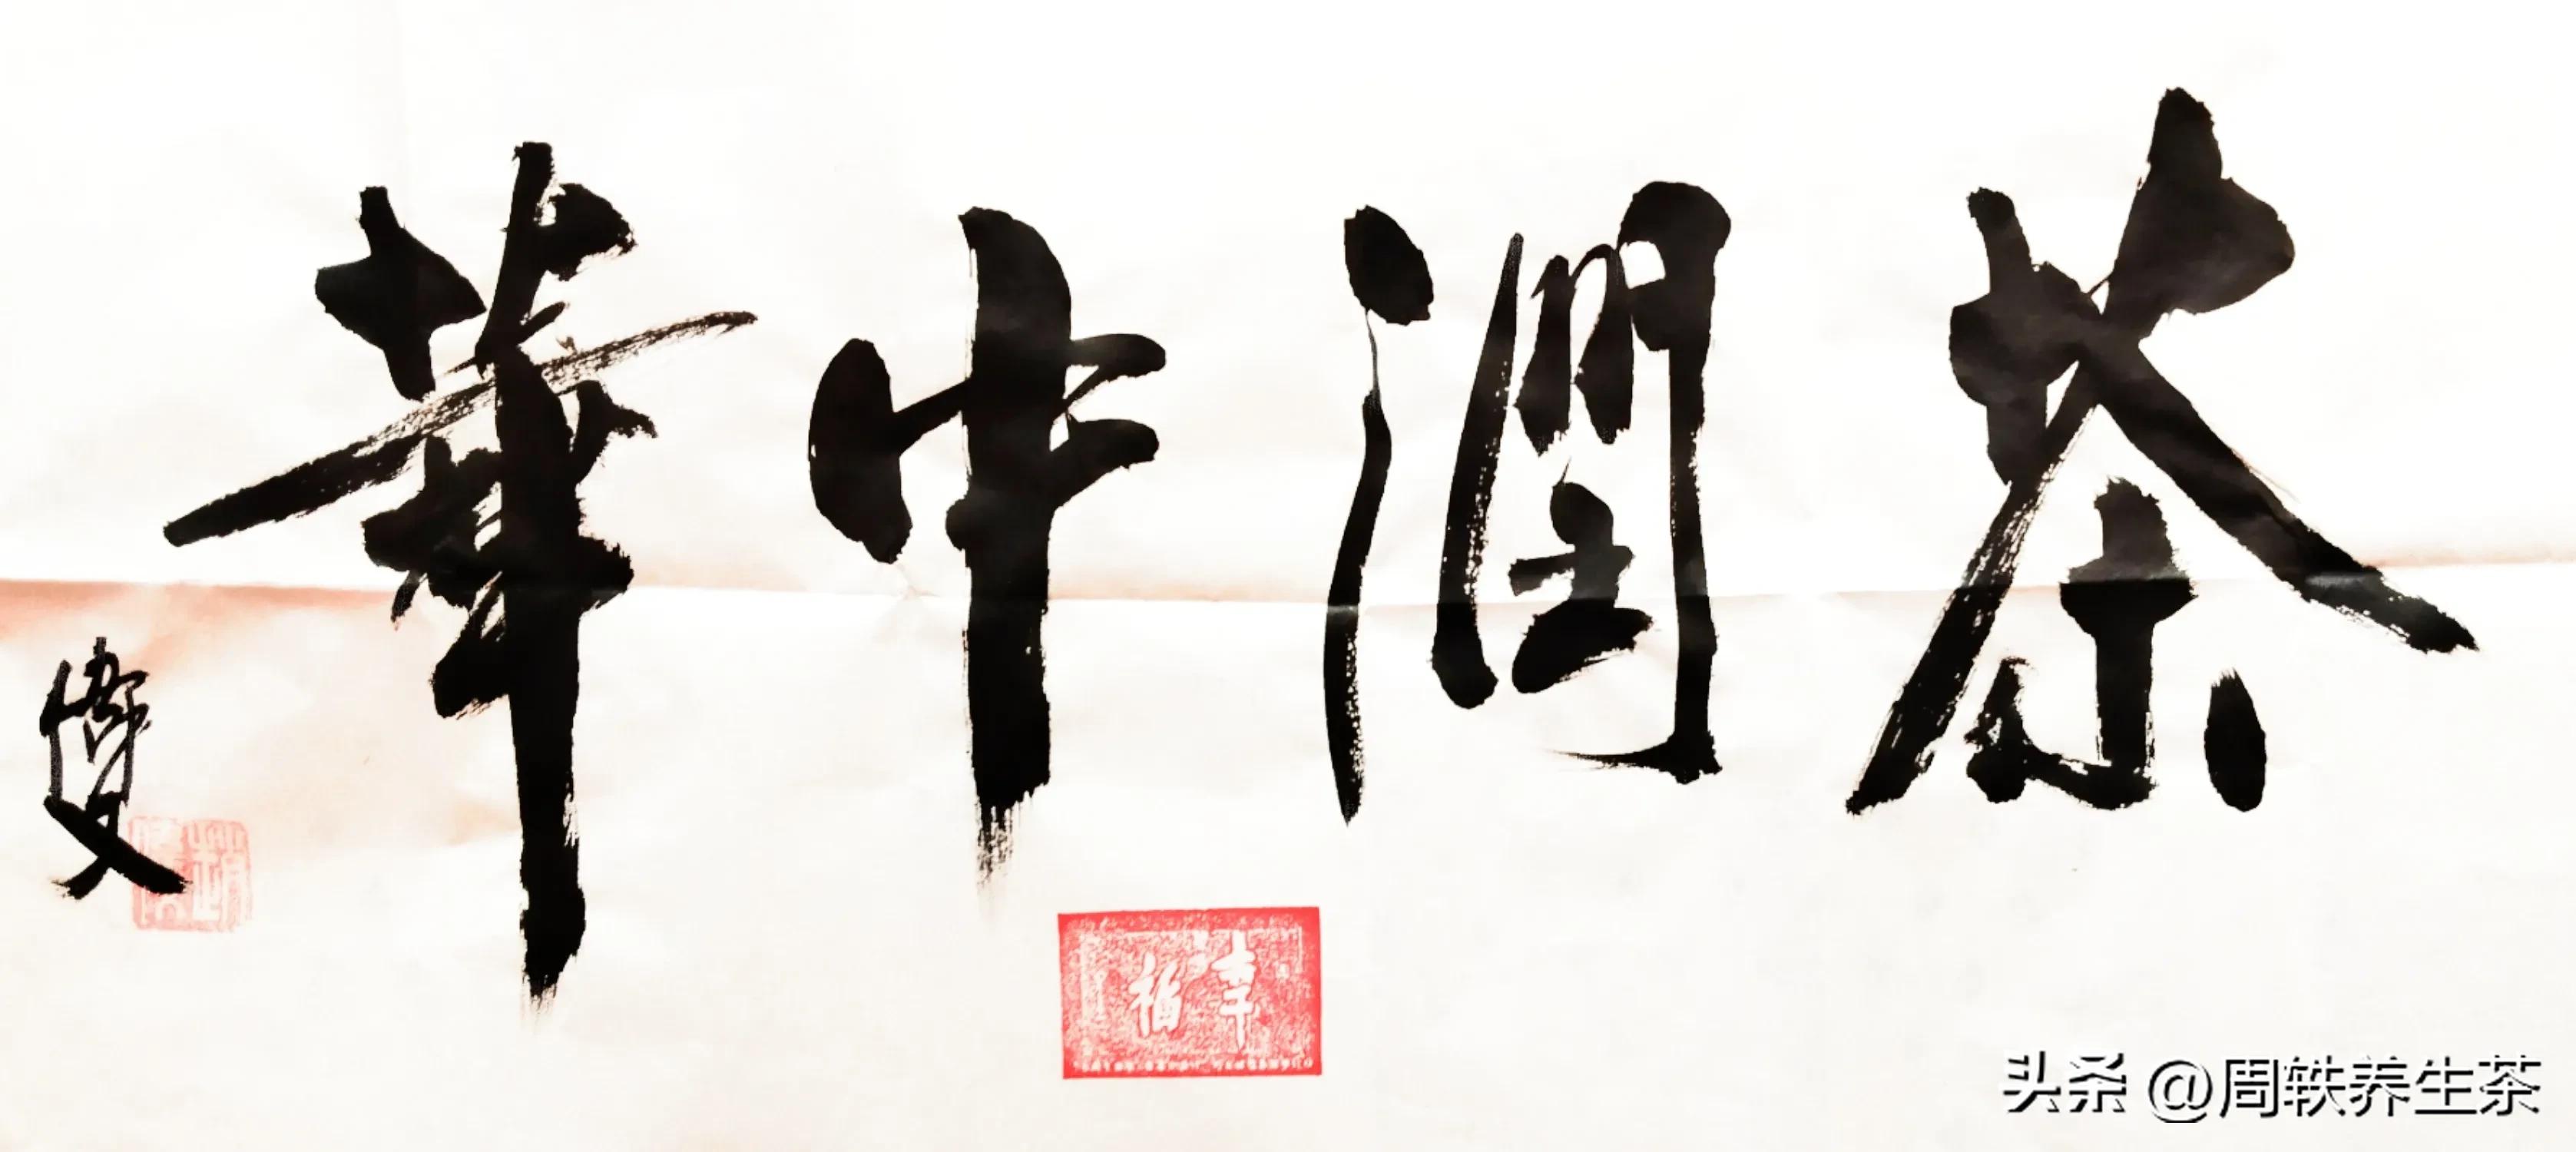 茶潤中華
幸福
头条 @周轶养生茶